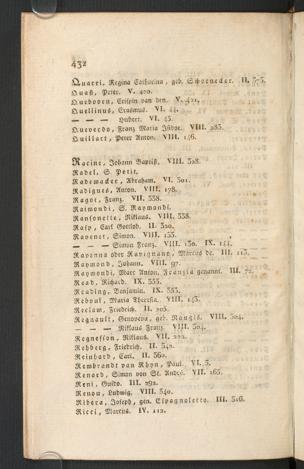 432
Quarri, Regina Catharina, geb. Schoenecker. II.
Quast, Peter. V. 400.
Queboven, Crispin van den. V. 421.
Quellinus, Erasmus. VI. 44.
— — — Hubert. VI. 45.
Quevedo, Franz Maria Isidor. VIII. 283.
Quillart, Peter Anton. VIII. 146.
Racine, Johann Baptist, VIII. 328.
Radel, S. Petit.
Rademacker, Abraham, VI. 301.
Radigues, Anton. VIII. 178.
Ragot, Franz. VII. 338.
Raimondi, S. Raymondi.
Ransonette, Niklaus. VIII. 338.
Rasp, Carl Gottlob. II. 320.
Ravenet, Simon. VIII. 133.
— — — Simon Franz. VIII. 130. IX.
Ravenna oder Ravignano, Marcus de. III. 113.
Raymond, Johann. VIII. 97.
Raymondi, Marc Anton, Franzia genannt. III.
Read, Richard. IX. 333.
Reading, Benjamin. IX. 333.
Reboul, Maria Theresia. VIII. 143.
Reclam, Friedrich. II. 203.
Regnault, Genoveva, geb. Naugis. VIII. 304.
— — — Niklaus Franz. VIII. 304.
Regnesson, Niklaus. VII. 222.
Rehberg, Friedrich. II. 342.
Reinhard, Carl. II. 360.
Rembrandt van Rhyn, Paul. VI. 3.
Renard, Simon von St. André. VII. 165.
Reni, Guido. III. 292.
Renou, Ludwig. VIII. 340.
Ribera, Joseph, gen. Espagnoletto. III. 316.
Ricci, Marcus. IV. 112.